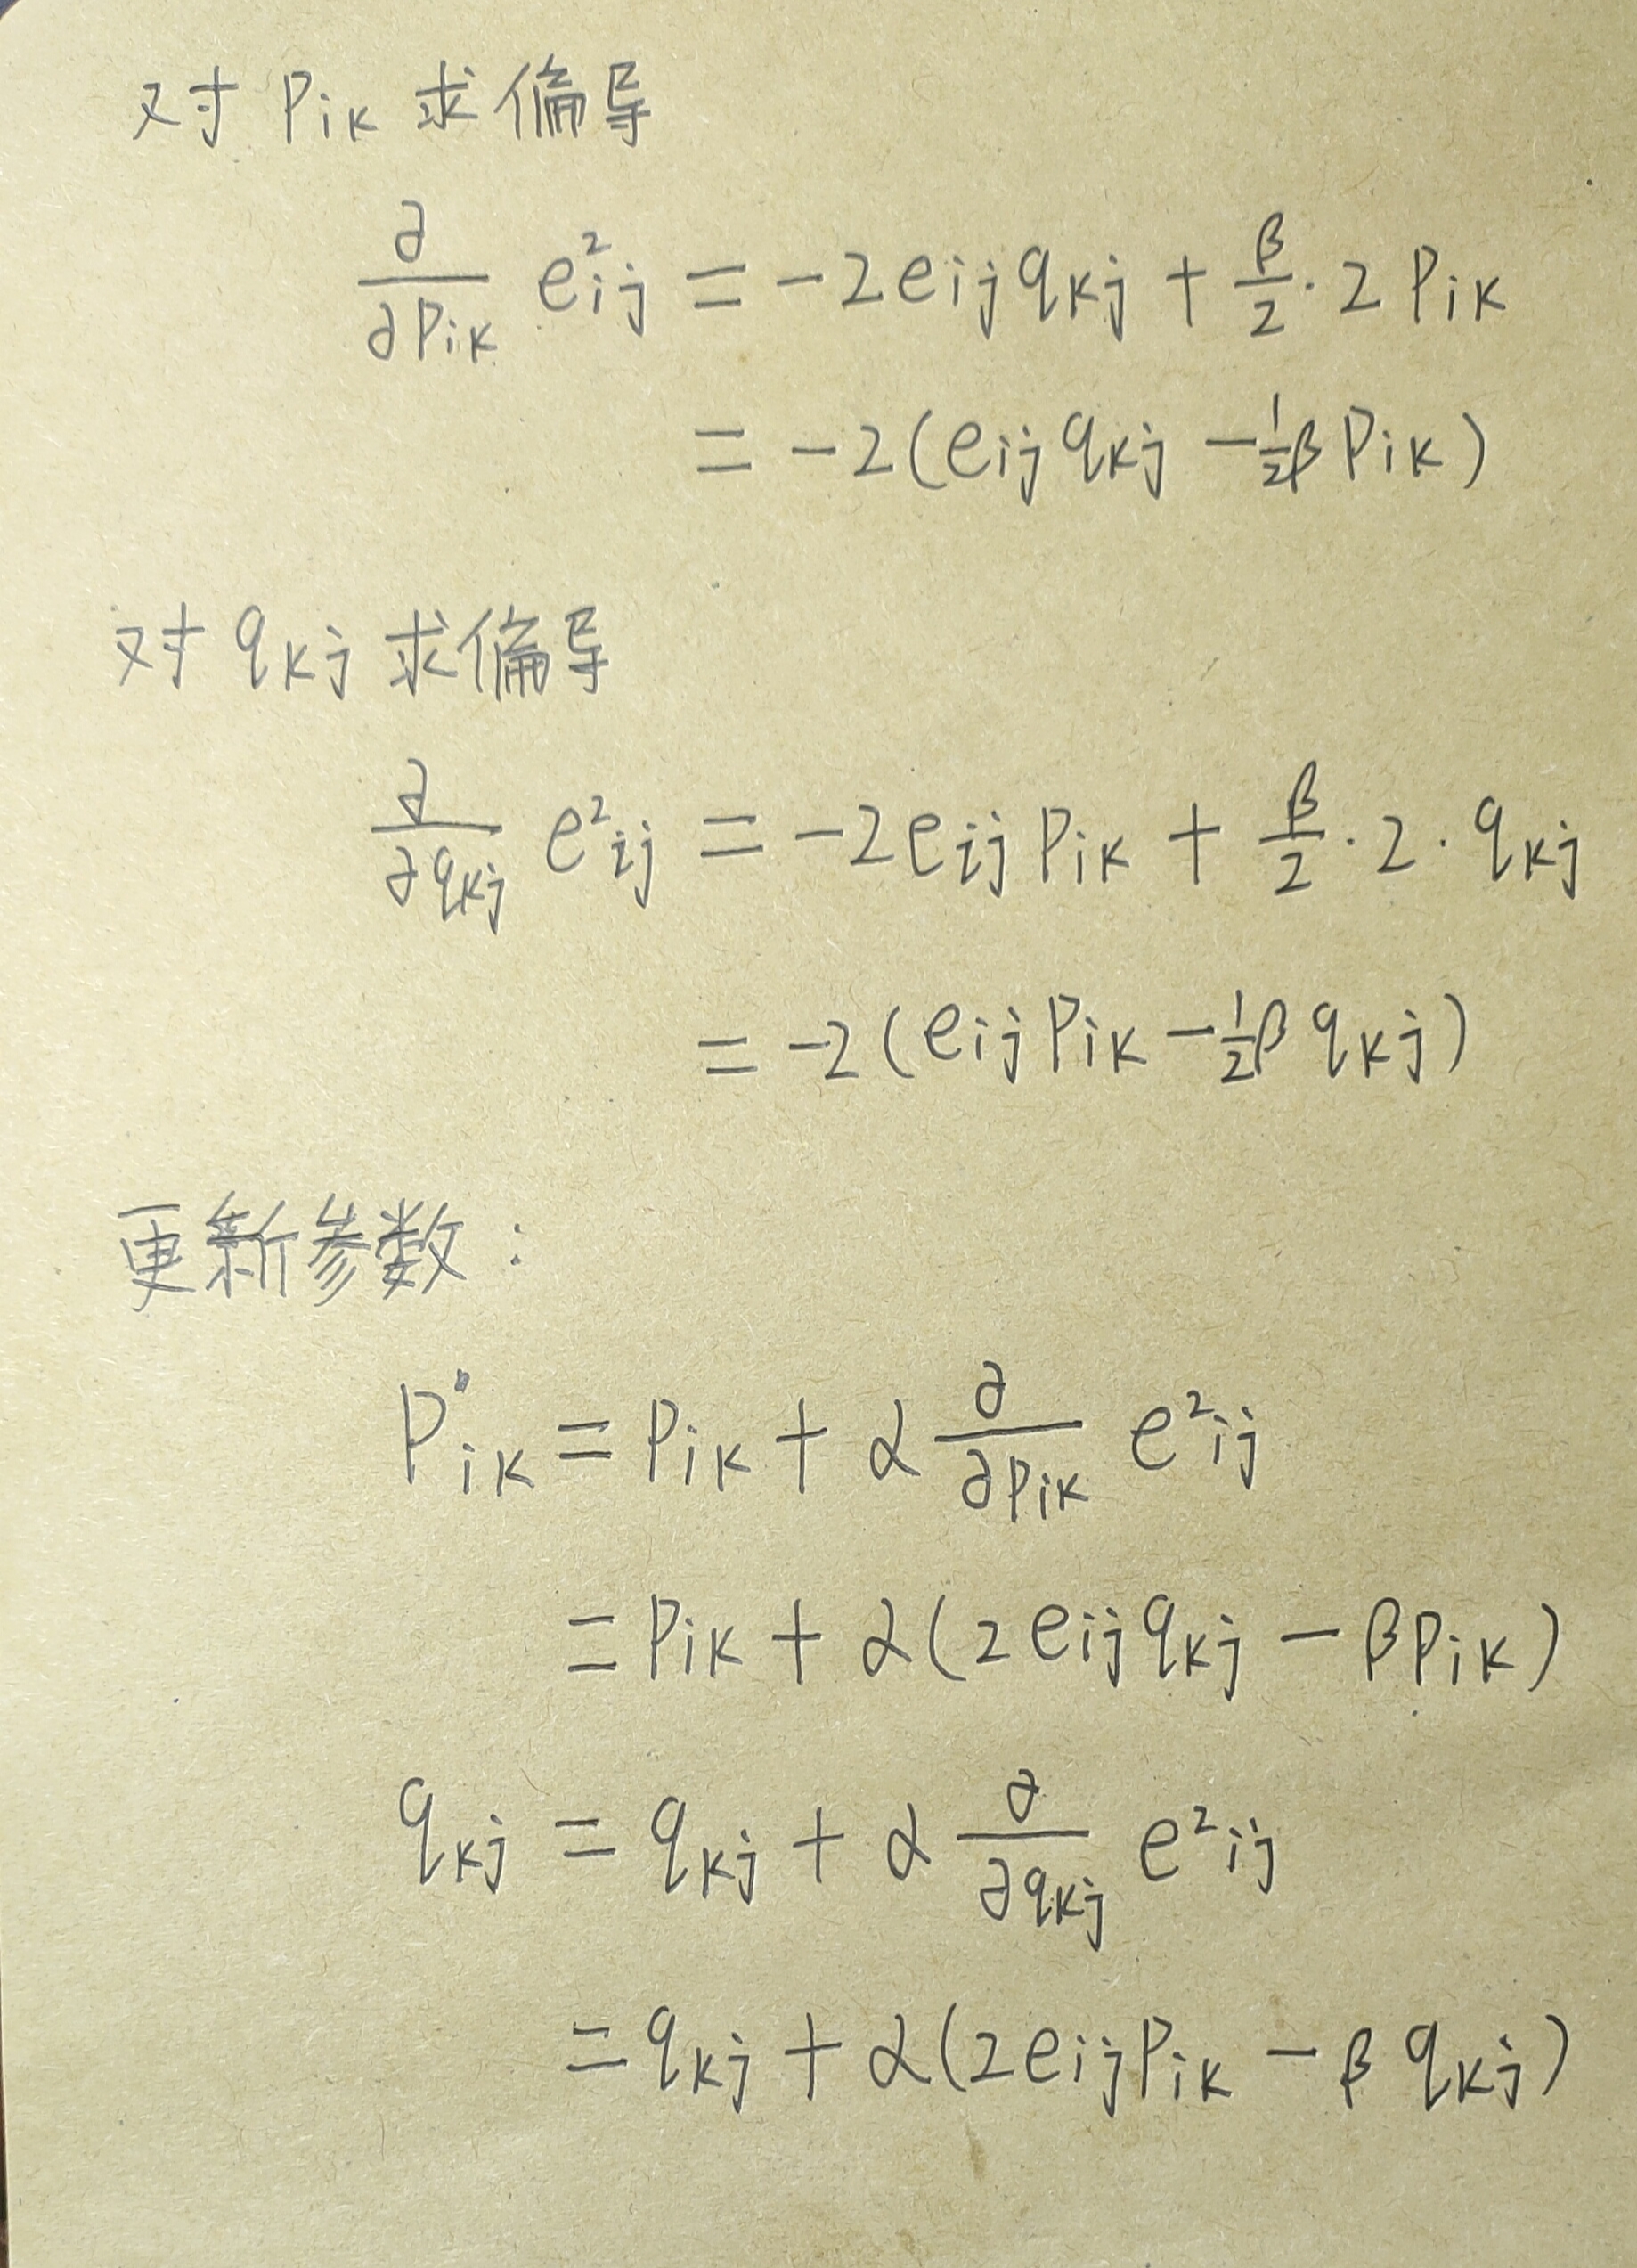 对 Pik 求偏导
∂/∂Pik e²ij = -2eij qkj + β/2 · 2 Pik
= -2(eij qkj - ½β Pik)
对 qkj 求偏导
∂/∂qkj e²ij = -2eij Pik + β/2 · 2 · qkj
= -2(eij Pik - ½β qkj)
更新参数:
Pik = Pik + α ∂/∂Pik e²ij
= Pik + α(2eij qkj - βPik)
qkj = qkj + α ∂/∂qkj e²ij
= qkj + α(2eij Pik - β qkj)